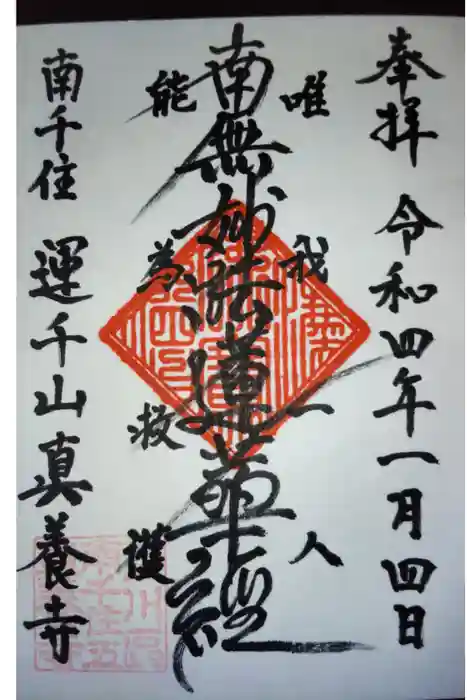 奉拝 令和四年一月四日
唯我一人
南無妙法蓮華経
能為救護
南千住 運千山真養寺